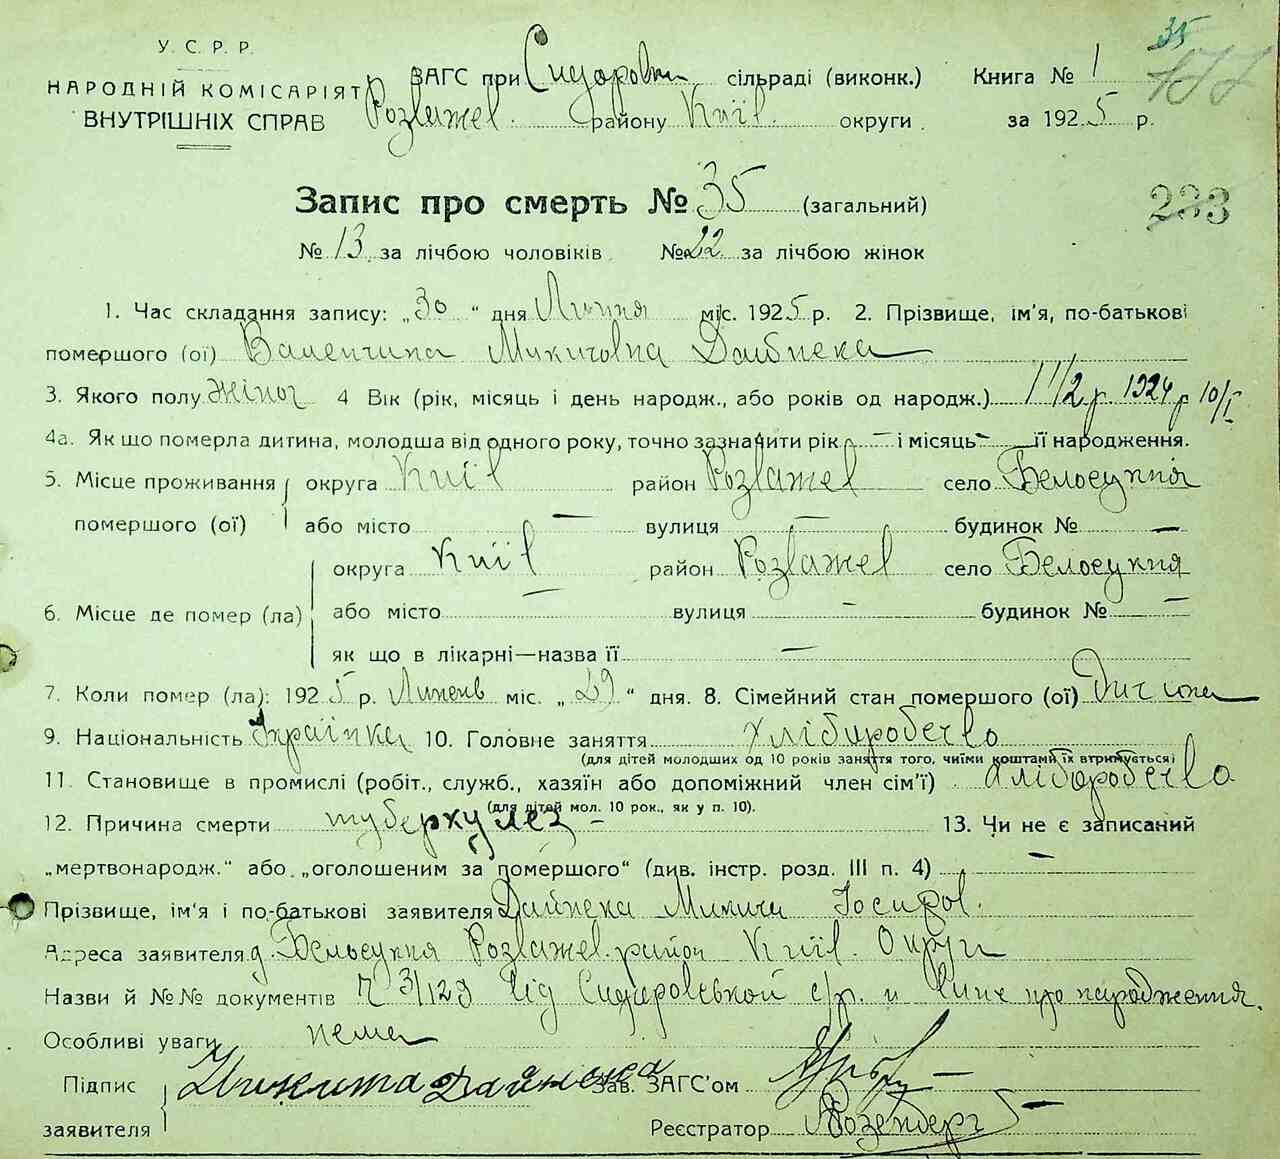 35
У. С. Р. Р.
НАРОДНІЙ КОМІСАРІЯТ
ВНУТРІШНІХ СПРАВ
ЗАГС при Сидоровки сільраді (виконк.) Книга № 1
Розважев. району Київ. округи за 1925 р.
Запис про смерть № 35 (загальний)
233
№ 13 за лічбою чоловіків №22 за лічбою жінок
1. Час складання запису: „30“ дня Липня міс. 1925 р. 2. Прізвище, ім'я, по-батькові
помершого (ої) Валентина Микитовна Дайнека
3. Якого полу жіноч 4 Вік (рік, місяць і день народж., або років од народж.) 1 1/2 р. 1924 р 10/I
4а. Як що померла дитина, молодша від одного року, точно зазначити рік — і місяць — її народження.
5. Місце проживання округа Київ район Розважев село Бєлосукня
помершого (ої) або місто — вулиця — будинок № —
округа Київ район Розважев село Бєлосукня
6. Місце де помер (ла) або місто — вулиця — будинок № —
як що в лікарні—назва її —
7. Коли помер (ла): 1925 р. Липень міс. „29“ дня. 8. Сімейний стан помершого (ої) Дитина
9. Національність Українка 10. Головне заняття Хліборобство
(для дітей молодших од 10 років заняття того, чиїми коштами їх втримується)
11. Становище в промислі (робіт., служб., хазяїн або допоміжний член сім'ї) Хліборобство
(для дітей мол. 10 рок., як у п. 10).
12. Причина смерти туберкулез — 13. Чи не є записаний
„мертвонародж.“ або „оголошеним за помершого“ (див. інстр. розд. III п. 4) —
Прізвище, ім'я і по-батькові заявителя Дайнека Микита Йосипов.
Адреса заявителя д. Бєльсукня Розважев. район Київ. Округи
Назви й №№ документів Ч 3/129 Від Сидоровської с/р. и про народження.
Особливі уваги нема
Підпис Никита Дайнека Зав. ЗАГС'ом
заявителя Реєстратор Розенберг